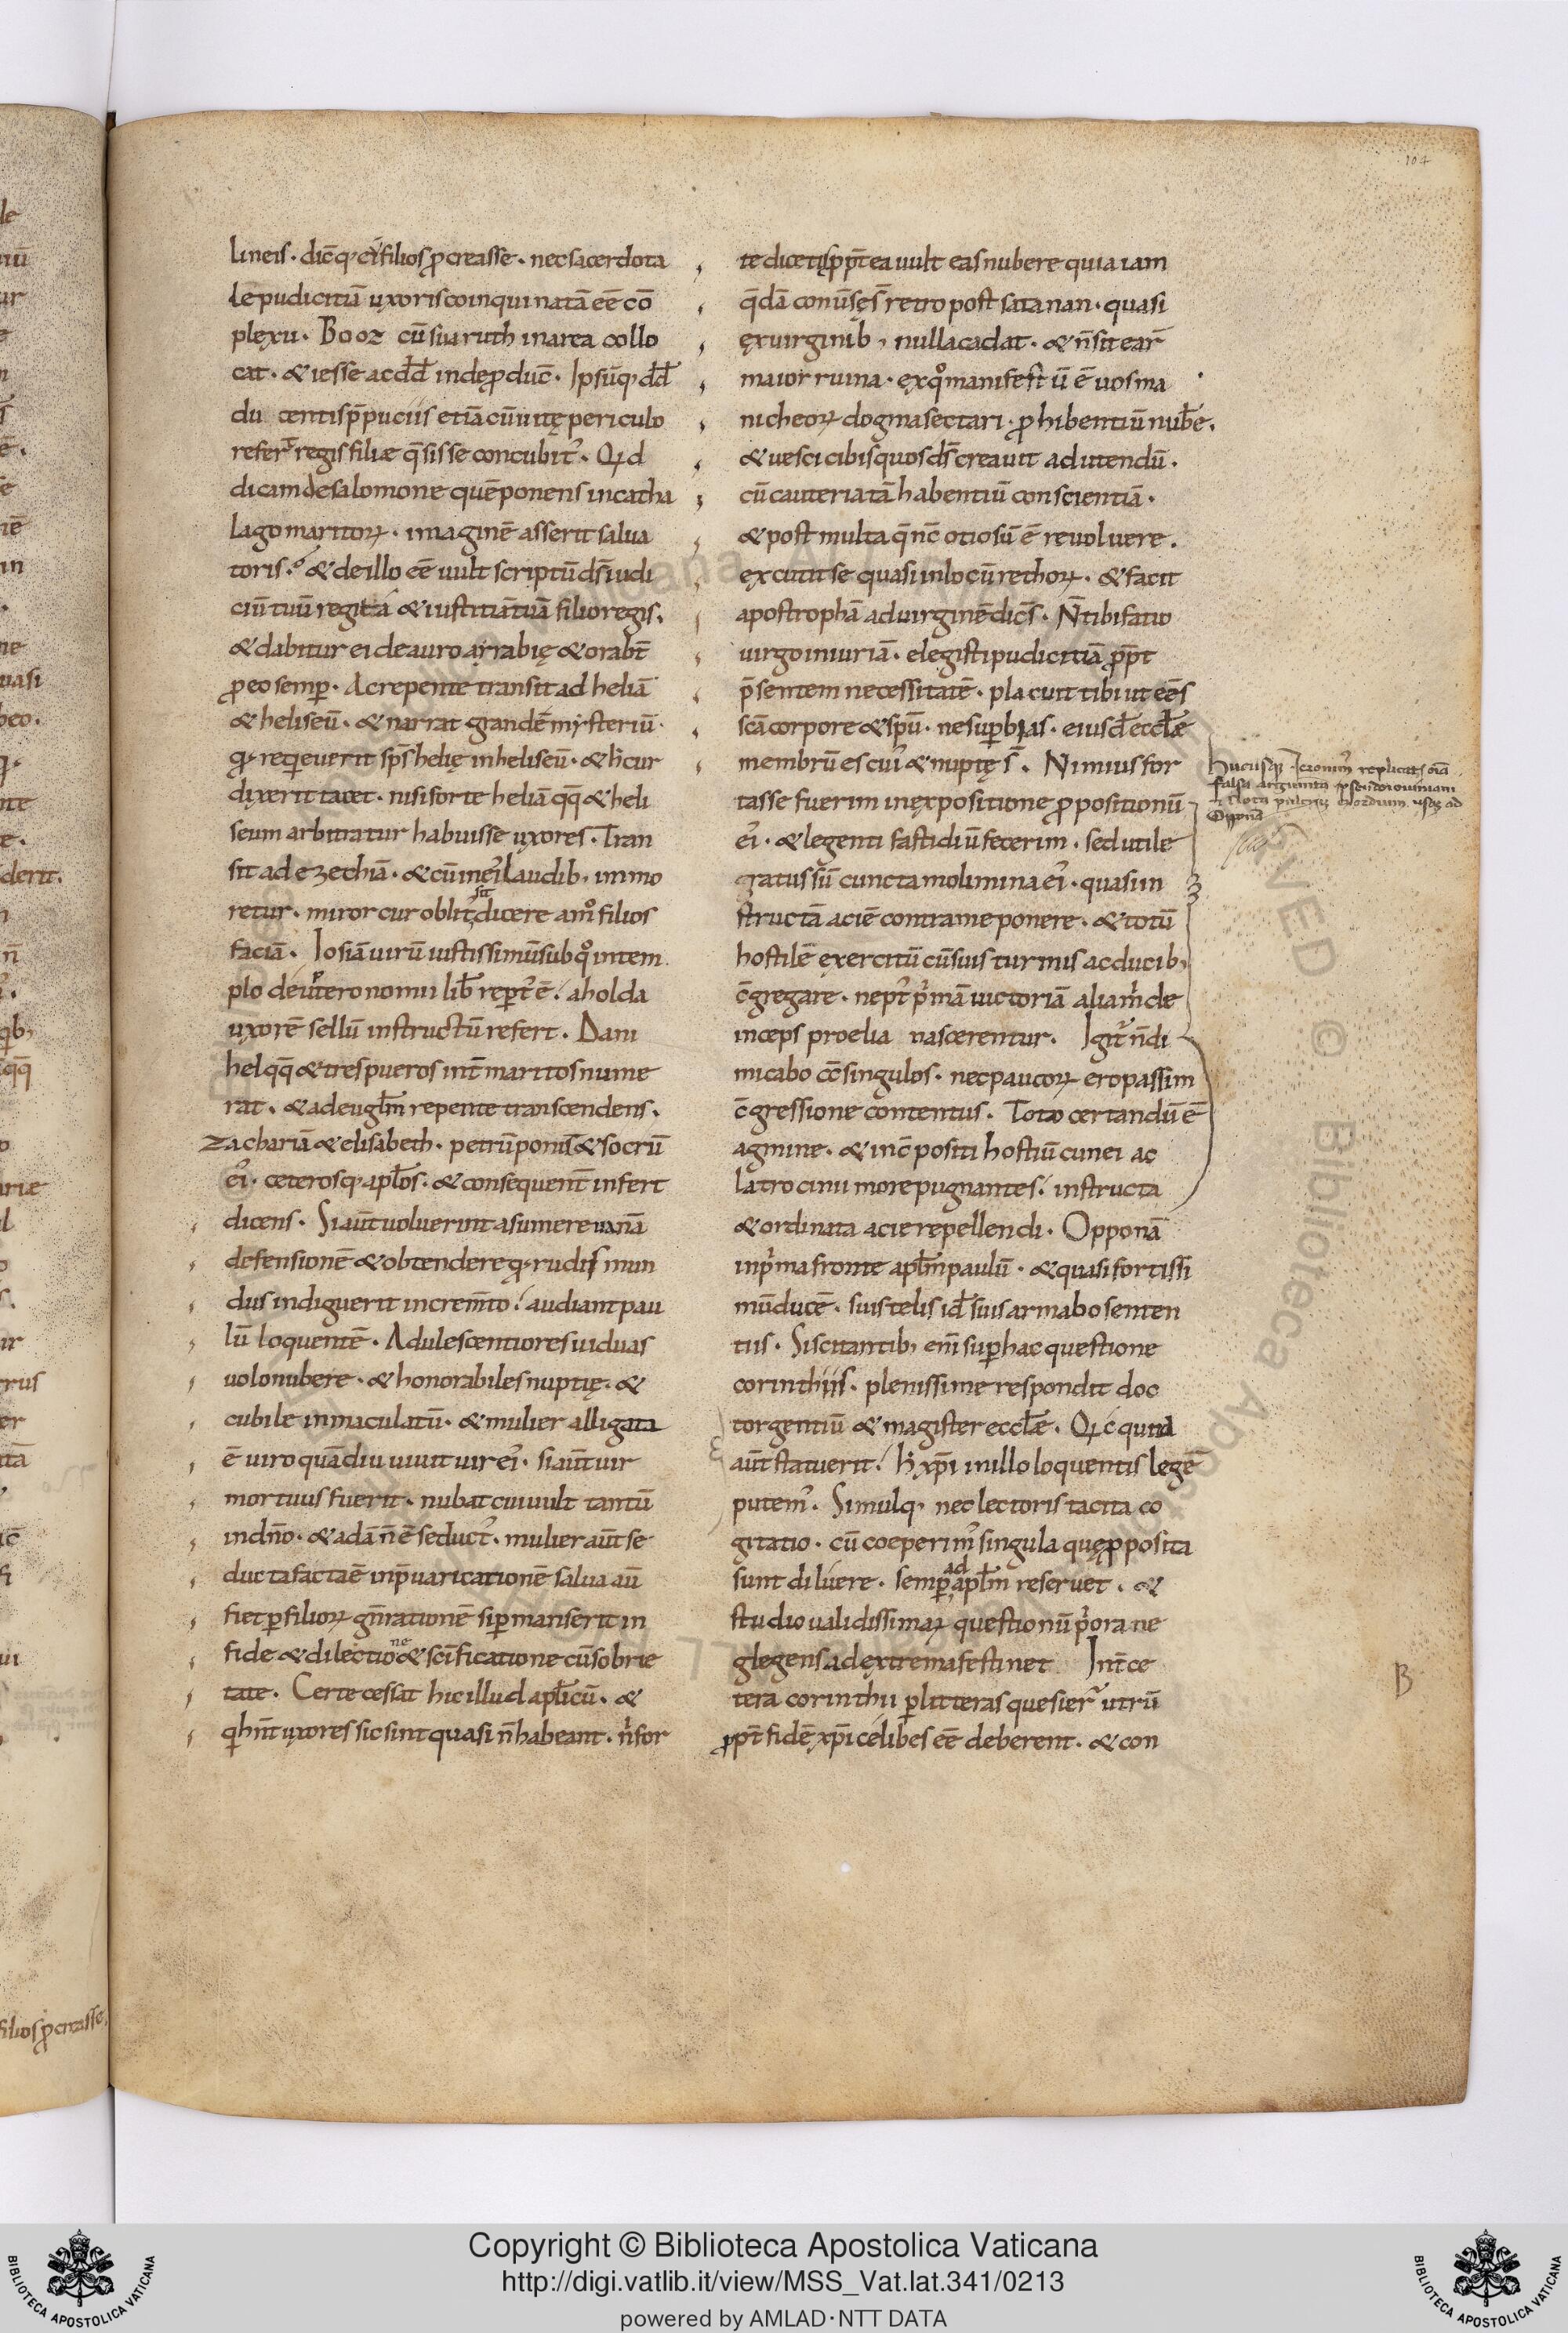 104
lineis · dic̄q; ei filios ꝓcreasse · nec sacerdota
le pudicitiā uxoris coinquinatā eē cō
plexu · Booz cū sua ruth in area collo
cat · & iesse ac dd̄ inde ꝓduc̄ · Ipsūq; dd̄
ducentis p̄puciis etiā cū uitę periculo
refert regis filiæ q̄sisse concubit᷒ · Qd
dicam de salomone quē ponens in catha
lago maritoꝝ · imaginē asserit salua
toris · & de illo eē uult scriptū dš iudi
ciū tuū regi da · & iustitiā tuā filio regis ·
& dabitur ei de auro arrabię & orabt̄
ꝓ eo semꝑ · Ac repente transit ad heliā
& heliseū · & narrat grandē mysteriū ·
qđ requieuerit sp̄s helię in heliseū · & h̄ cur
dixerit tacet · nisi forte heliā qq̄ & heli
seum arbitratur habuisse uxores · Tran
sit ad ezechiā · & cū in ei᷒ laudib; immo
retur · miror cur oblit᷒ sit dicere amº filios
faciā · Iosiā uirū iustissimū sub qº in tem
plo deuteronomii lib̄ rept᷒ ē · a holda
uxorē sellū instructū refert · Dani
hel qq̄ & tres pueros int̄ maritos nume
rat · & ad eugl̄m repente transcendens ·
zachariā & elisabeth · petrū ponit & socrū
ei᷒ · ceterosq; apl̄os · & consequent̄ infert
dicens · Si aūt uoluerint asumere uanā
defensionē & obtendere qđ rudis mun
dus indiguerit increm̄to · audiant pau
lū loquentē · Adulescentiores uiduas
uolo nubere · & honorabiles nuptię · &
cubile inmaculatū · & mulier alligata
ē uiro quā diu uiuit uir ei᷒ · si aūt uir
mortuus fuerit · nubat cui uult tantū
in dn̄o · & adā n̄ ē seduct᷒ · mulier aūt se
ducta facta ē in p̄uaricationē salua aū
fiet ꝑ filioꝝ gn̄rationē si ꝑmanserit in
fide & dilectione & sc̄ificatione cū sobrie
tate · Certe cessat hic illud apl̄icū · &
q hn̄t uxores sic sint quasi n̄ habeant · n̄ for
te dicetis ꝓpt̄ea uult eas nubere quia iam
q̄dā conūsę s̄ retro post satanan · quasi
ex uirginib; nulla cadat · & n̄ sit eaꝝ
maior ruina · ex qº manifestū ē uos ma
nicheoꝝ dogma sectari · ꝓhibentiū nub̄e ·
& uesci cibis quos dš creauit ad utendū ·
cū cauteriatā habentiū conscientiā ·
& post multa q̄ nc̄ otiosū ē reuoluere ·
excutit se quasi in locū rethoꝝ · & facit
apostrophā ad uirginē dicēs · N̄ tibi fatio
uirgo iniuriā · elegisti pudicitiā ꝓpt̄
p̄sentem necessitatē · placuit tibi ut eēs
sc̄a corpore & sp̄u · ne suꝑbias · eiusd̄ eccl̄æ
membrū es cui᷒ & nuptę s̄ · Nimius for
tasse fuerim in expositione ꝓpositionū
ei᷒ · & legenti fastidiū fecerim · sed utile
ratus sū cuncta molimina ei᷒ · quasi in
structā aciē contra me ponere · & totū
hostilē exercitū cū suis turmis ac ducib;
c̄gregare · ne pt᷒ p̄mā uictoriā alia m̄ de
inceps proelia nascerentur · Igit᷒ n̄ di
micabo cc̄ singulos · nec paucoꝝ ero passim
c̄gressione contentus · Toto certandū ē
agmine · & inc̄positi hostiū cunei ac
latrocinii more pugnantes · instructa
& ordinata acie repellendi · Opponā
in p̄ma fronte apl̄m paulū · & quasi fortissi
mū ducē · suis telis id̄ suis armabo senten
tiis · Siscitantib; eni̅ suꝑ hac questione
corinthiis · plenissime respondit doc
tor gentiū & magister eccl̄æ · Qicquid
aūt statuerit · h̄ xp̄i in illo loquentis legē
putem᷒ · Simulq; nec lectoris tacita co
gitatio · cū coeperim᷒ singula quę ꝓposita
sunt diluere · semꝑ ad apl̄m reseruet · &
studio ualidissimaꝝ questionū p̄ora ne
glegens ad extrema festinet Int̄ ce
tera corinthii ꝑ litteras quesiert utrū
ꝓpt̄ fidē xp̄i celibes eē deberent · & con
Hucusq; Ieronim᷒ replicat oīa
falsa argumta pseudoiouiniani
usq; ad
Opponā
B
filios ꝓcreasse
Copyright © Biblioteca Apostolica Vaticana
http://digi.vatlib.it/view/MSS_Vat.lat.341/0213
powered by AMLAD·NTT DATA
BIBLIOTECA APOSTOLICA VATICANA
BIBLIOTECA APOSTOLICA VATICANA